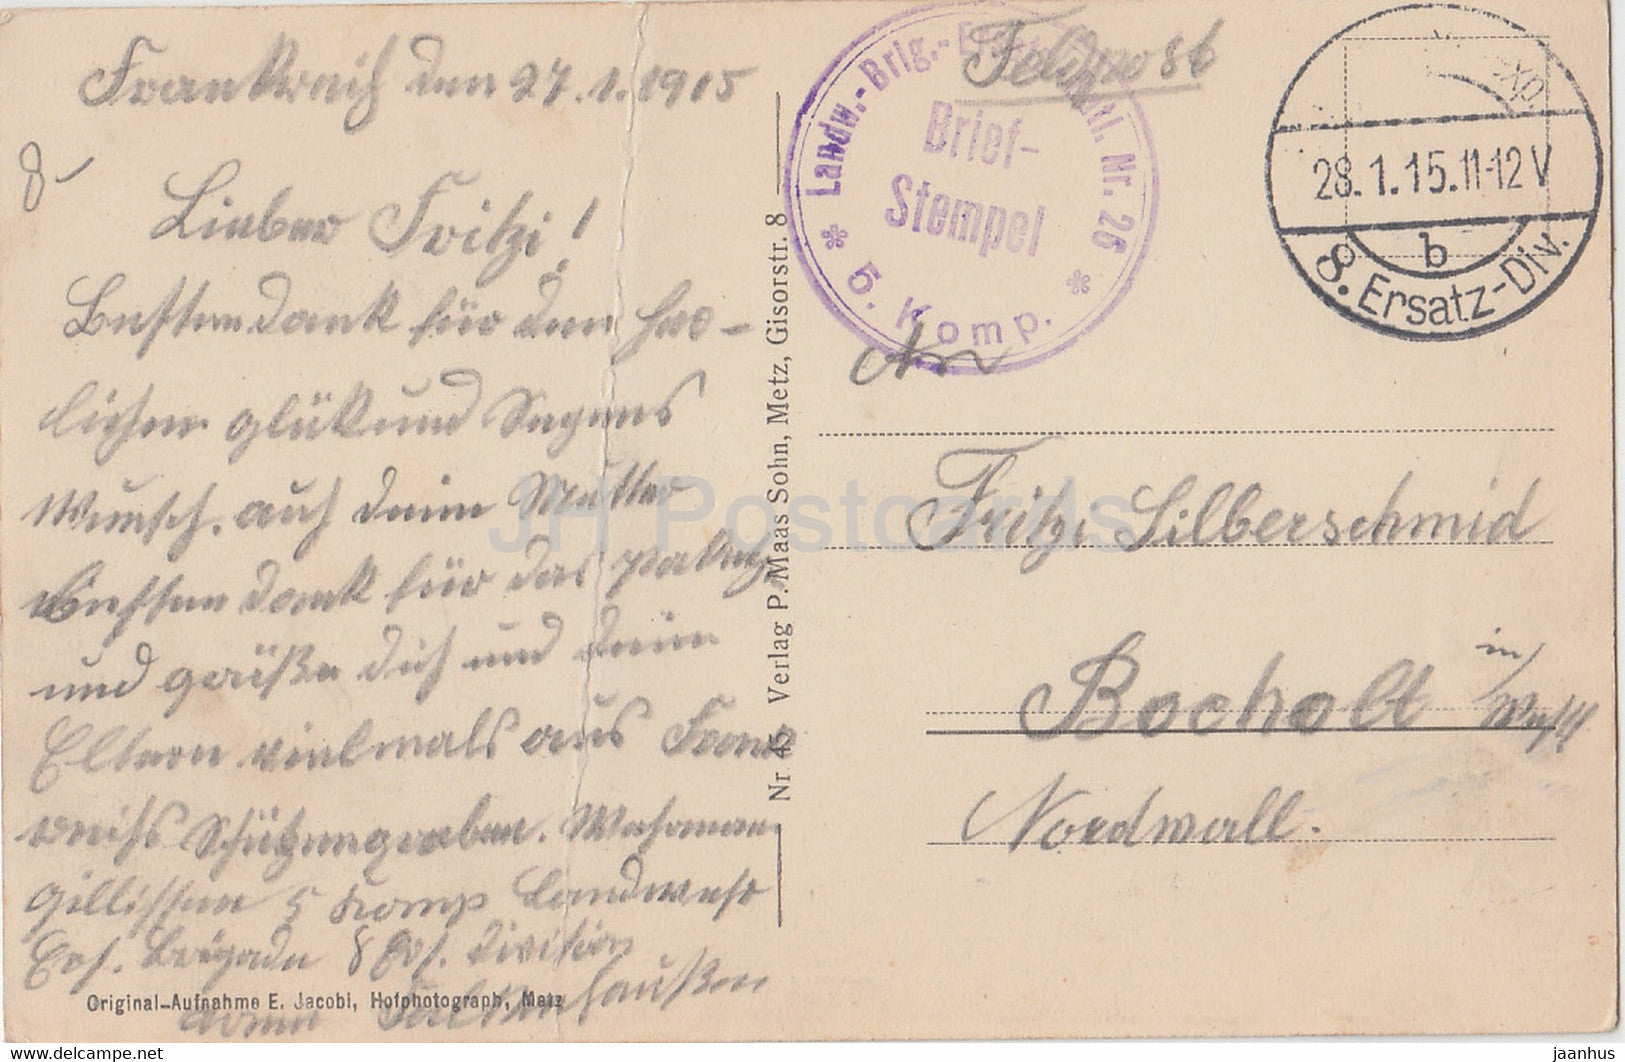 Frankreich den 27.1.1915
8-
Lieber Fritzi!
Besten dank für den herz-
lichen glück und Segens
Wunsch. auch deine Mutter
besten dank für das paket
und grüße dich und deine
Eltern vielmals aus Frank
reichs Schützengraben. Wehrmann
Gillissen 5 Komp Landwehr
Ers. Brigade 8 Ers. Division
Falkenhaußen
Original-Aufnahme E. Jacobi, Hofphotograph, Metz
Nr. 45 Verlag P. Maas Sohn, Metz, Gisorstr. 8
Landw.-Brig.- Nr. 26
Brief-
Stempel
5. Komp.
Feldpost
28.1.15.11-12V
b
8. Ersatz-Div.
An
Fritz Silberschmid
Bocholt in Westf
Nordwall.
JH Postcards
delcampe.net
jaanhus